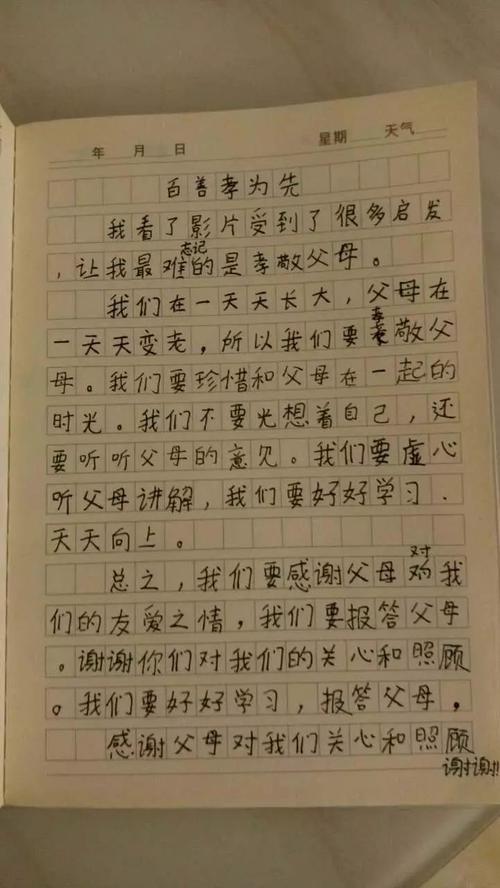 年 月 日 星期 天气
百善孝为先
我看了影片受到了很多启发
，让我最难忘记的是孝敬父母。
我们在一天天长大，父母在
一天天变老，所以我们要孝敬父
母。我们要珍惜和父母在一起的
时光。我们不要光想着自己，还
要听听父母的意见。我们要虚心
听父母讲解，我们要好好学习.
天天向上。
总之，我们要感谢父母对我
们的友爱之情，我们要报答父母
。谢谢你们对我们的关心和照顾
。我们要好好学习，报答父母，
感谢父母对我们关心和照顾
谢谢!!